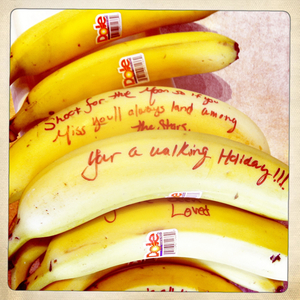 Dole
Dole
Shoot for the Moon so if you
Miss you'll always land among
the stars.
Your a walking Holiday!!!
Loved
Dole